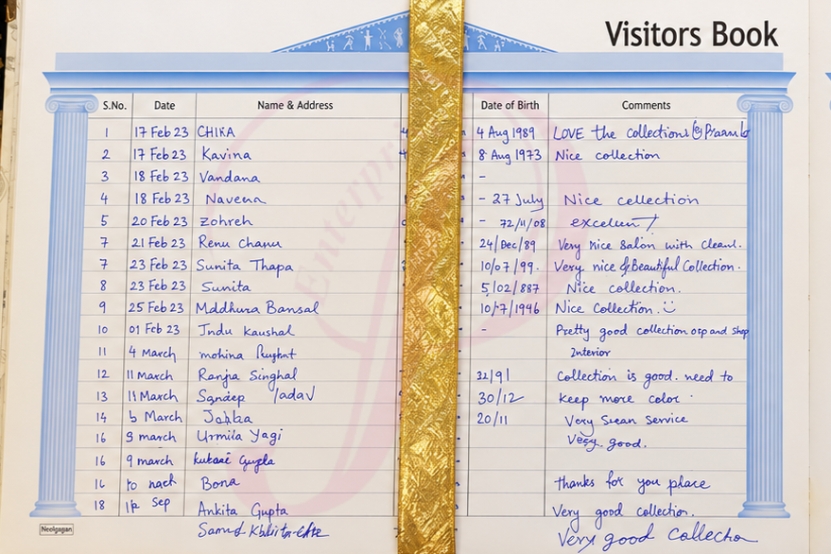 Visitors Book
S.No. Date Name & Address Date of Birth Comments
1 17 Feb 23 CHIKA 4 Aug 1989 LOVE the collections
2 17 Feb 23 Kavina 8 Aug 1973 Nice collection
3 18 Feb 23 Vandana -
4 18 Feb 23 Naveena - 27 July Nice collection
5 20 Feb 23 Zohreh - 72/11/08
7 21 Feb 23 Renu Chanu 24/Dec/89 Very nice Salon with
7 23 Feb 23 Sunita Thapa 10/07/99. Very nice & Beautiful Collection.
8 23 Feb 23 Sunita 5/02/887 Nice collection.
9 25 Feb 23 Maddhura Bansal 10/7/1946 Nice Collection.
10 01 Feb 23 Indu Kaushal - Pretty good collection and shop
Interior
11 4 March mohina
12 11 March Singhal Collection is good. need to
13 11 March Sandep Yadav 30/12 keep more color.
14 March 20/11 Very service
16 9 March Urmila Yagi Very good.
16 9 march Gupta
Bona thanks for you place
18 Sep Ankita Gupta Very good collection.
Very good
Neelgagan
Enterpr